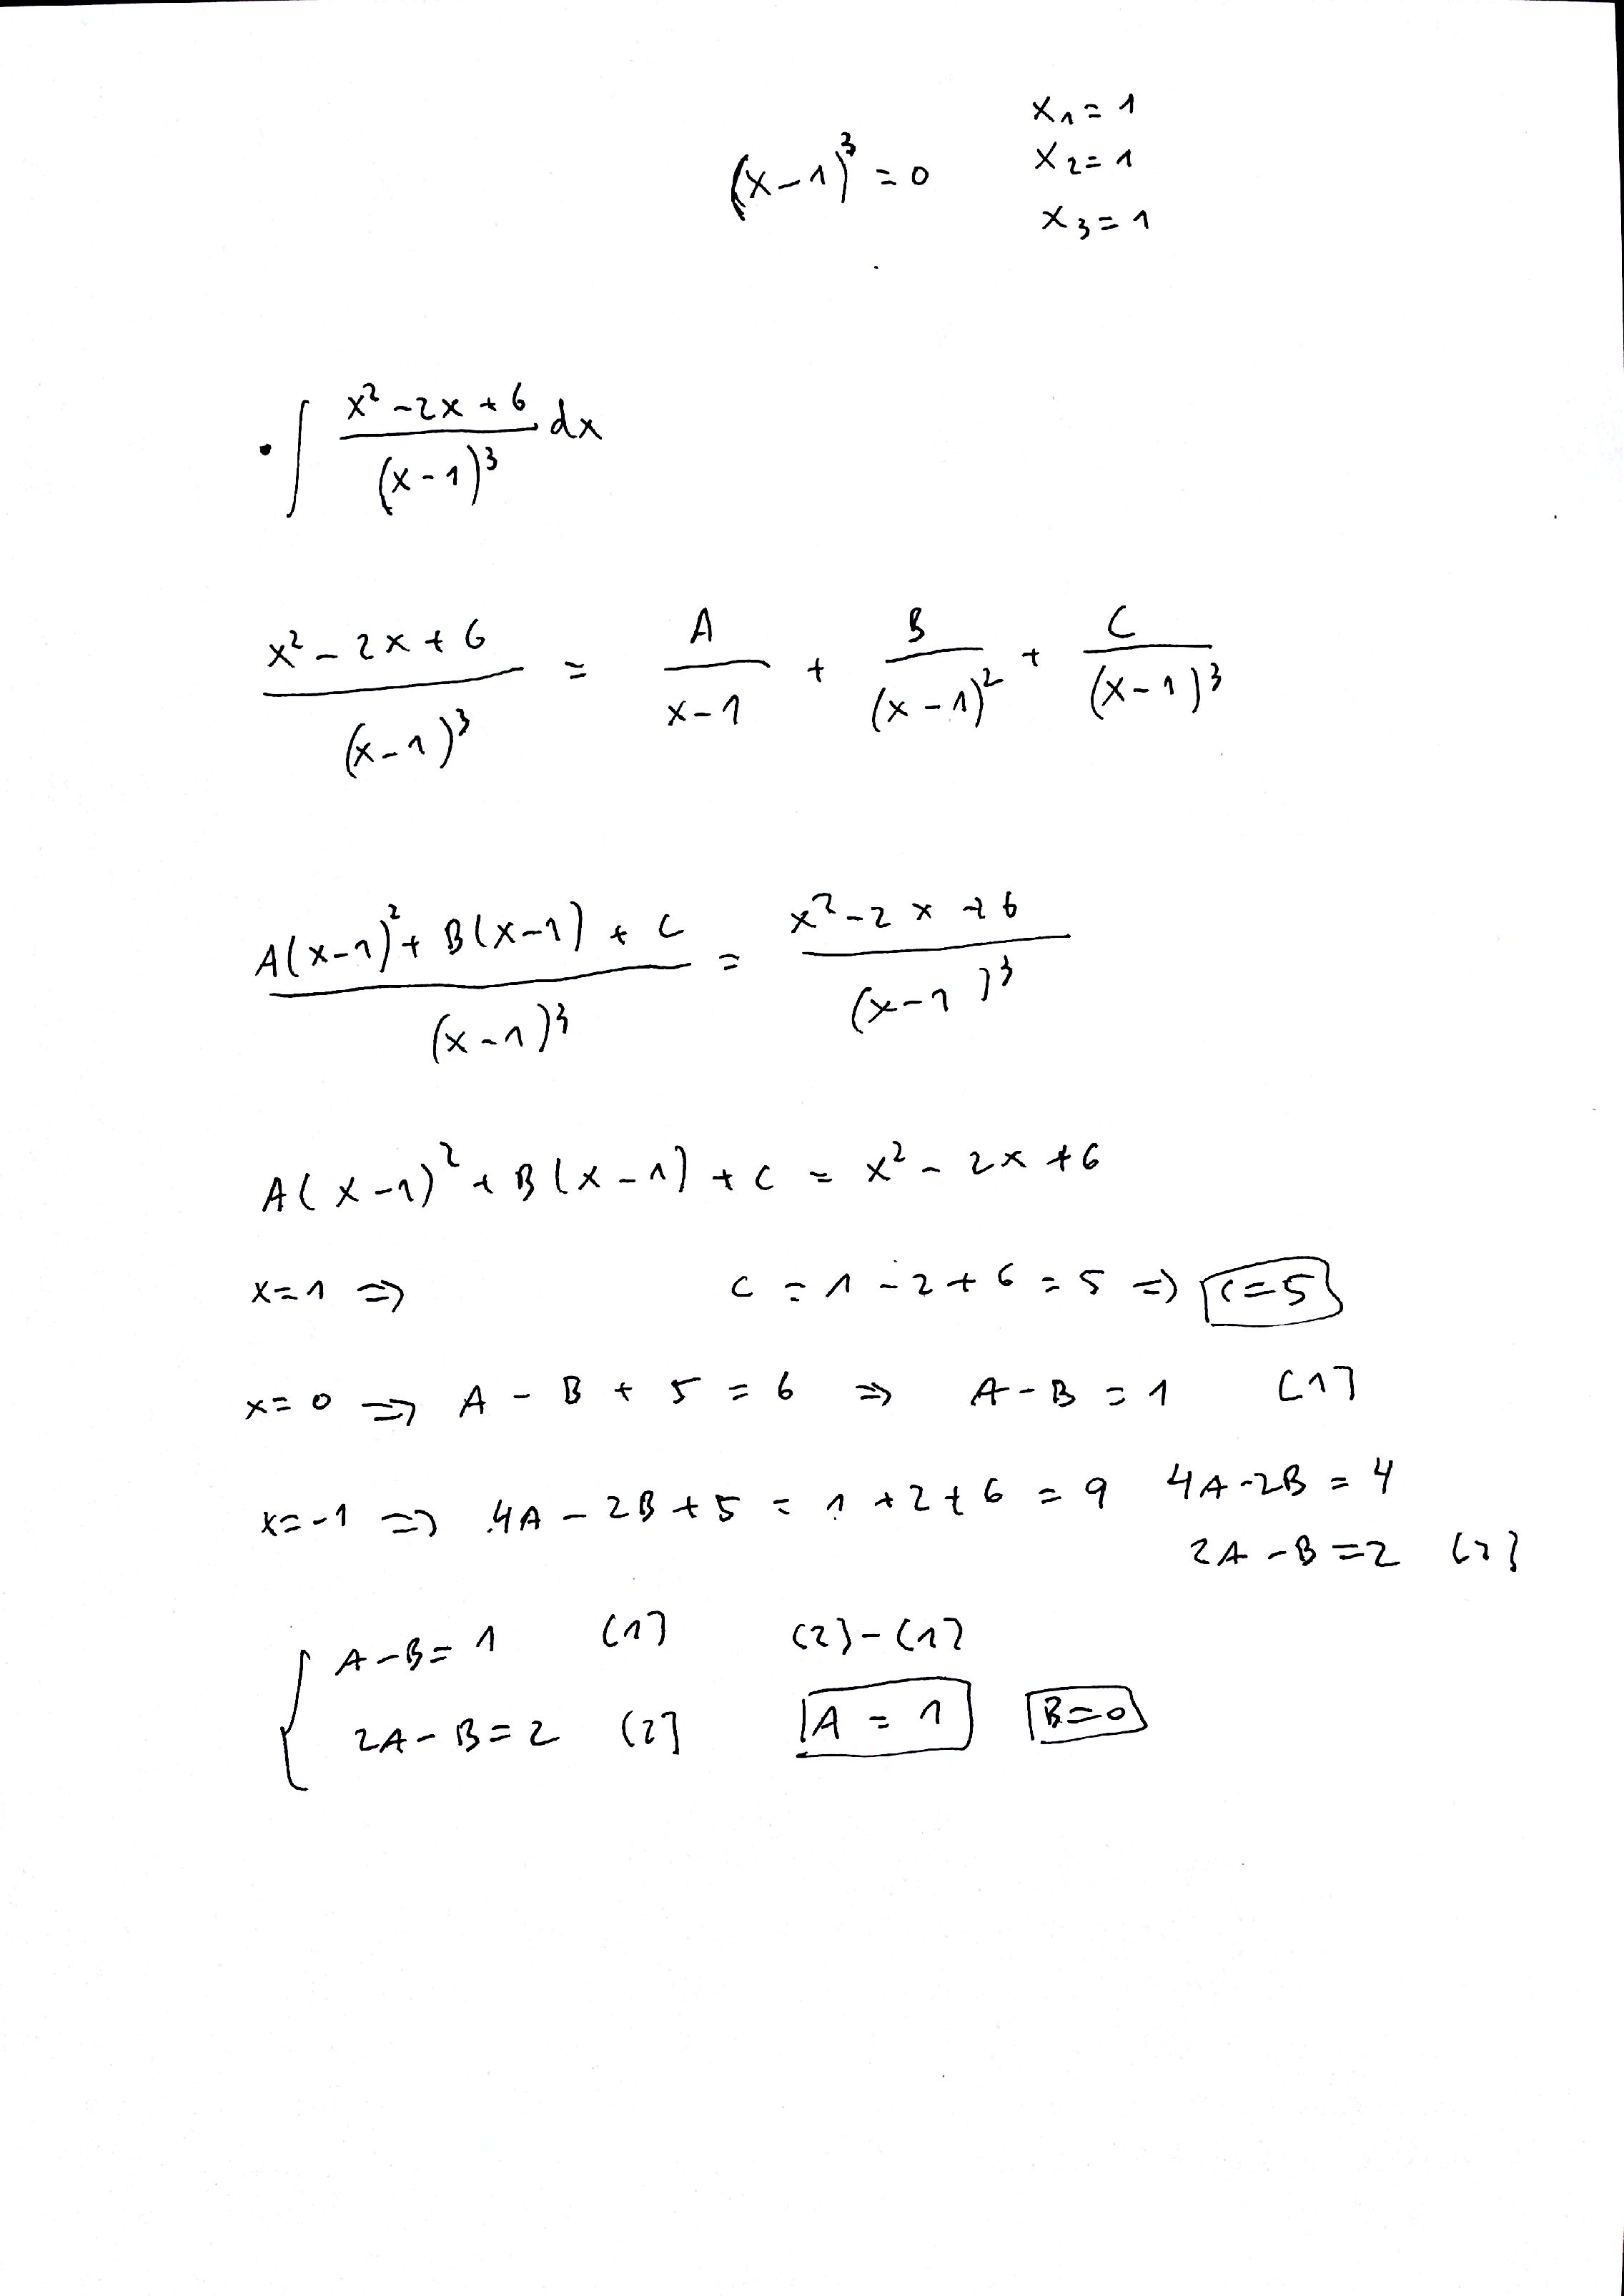 (x-1)³ = 0
x₁ = 1
x₂ = 1
x₃ = 1
• ∫ (x² - 2x + 6)/(x-1)³ dx
(x² - 2x + 6)/(x-1)³ = A/(x-1) + B/(x-1)² + C/(x-1)³
(A(x-1)² + B(x-1) + C)/(x-1)³ = (x² - 2x + 6)/(x-1)³
A(x-1)² + B(x-1) + C = x² - 2x + 6
x=1 ⇒ C = 1 - 2 + 6 = 5 ⇒ C=5
x=0 ⇒ A - B + 5 = 6 ⇒ A - B = 1 (1)
x=-1 ⇒ 4A - 2B + 5 = 1 + 2 + 6 = 9 4A-2B = 4
2A - B = 2 (2)
{ A - B = 1 (1) (2)-(1)
2A - B = 2 (2) A = 1 B=0